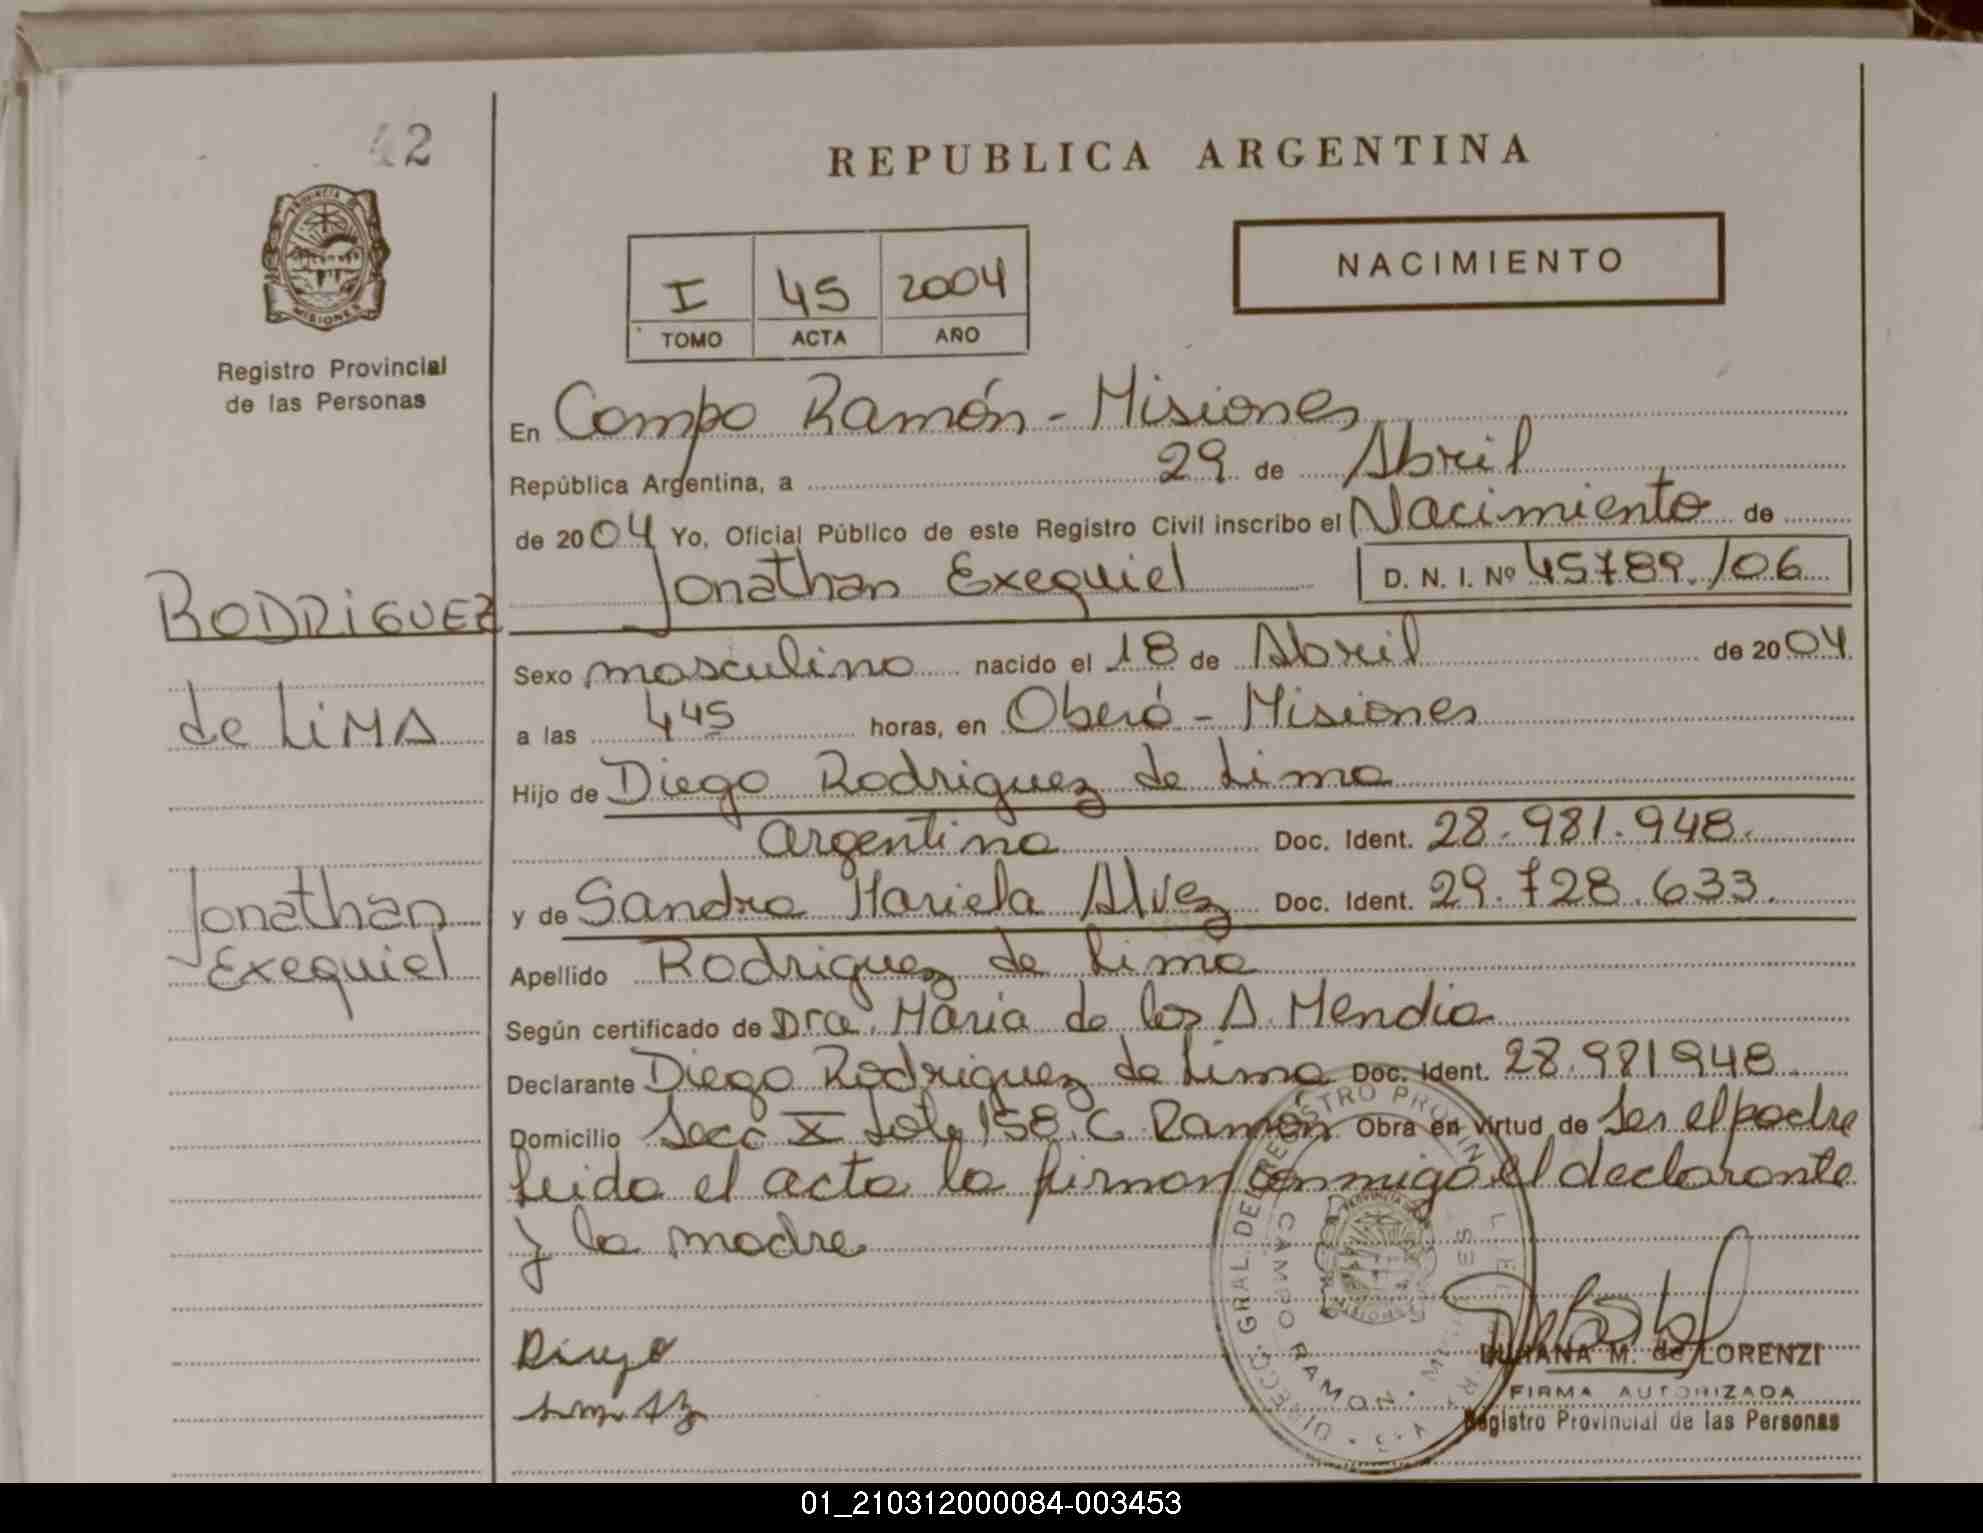 42
REPUBLICA ARGENTINA
PROVINCIA DE
MISIONES
I 45 2004
TOMO ACTA AÑO
NACIMIENTO
Registro Provincial
de las Personas
En Campo Ramón - Misiones
República Argentina, a 29 de Abril
de 2004 Yo, Oficial Público de este Registro Civil inscribo el Nacimiento de
Jonathan Exequiel D. N. I. Nº 45789./06
RODRIGUEZ
Sexo masculino nacido el 18 de Abril de 2004
de LiMA
a las 445 horas, en Oberá - Misiones
Hijo de Diego Rodriguez de Lima
argentino Doc. Ident. 28.981.948.
Jonathan
y de Sandra Mariela Alvez Doc. Ident. 29.728.633.
Exequiel
Apellido Rodriguez de Lima
Según certificado de Dra. Maria de los A. Mendia
Declarante Diego Rodriguez de Lima Doc. Ident. 28.981948
Domicilio Secc X Lote 158. C. Ramón Obra en virtud de ser el padre
Leida el acta la firman conmigo el declarante
y la madre
Diego
DIRECC. GRAL. DEL REGISTRO PROVIN
CAMPO RAMON
M. de LORENZI
FIRMA AUTORIZADA
Registro Provincial de las Personas
01_210312000084-003453